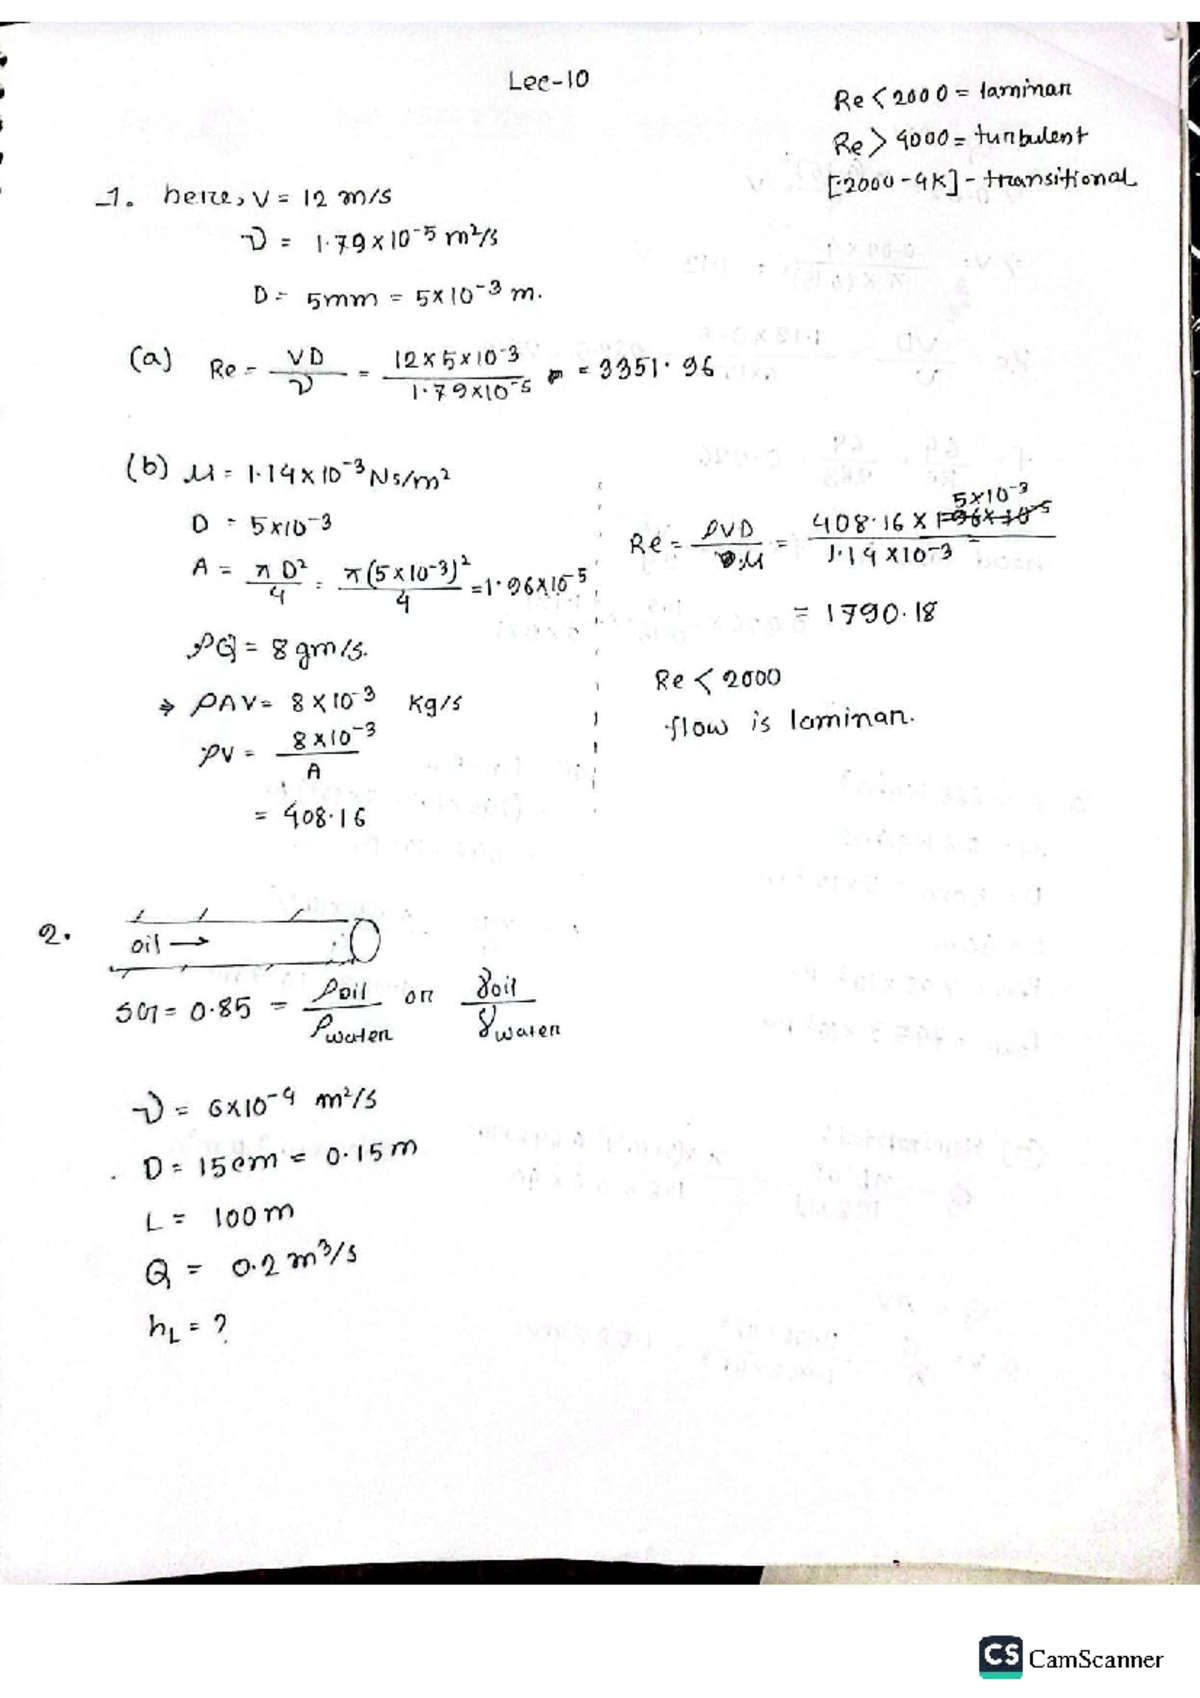 Lec-10
Re < 2000 = laminar
Re > 4000 = turbulent
[2000-4K] - transitional
1. here, V = 12 m/s
ν = 1.79×10⁻⁵ m²/s
D = 5mm = 5×10⁻³ m.
(a) Re = VD/ν = 12×5×10⁻³/1.79×10⁻⁵ = 3351.96
(b) μ = 1.14×10⁻³ Ns/m²
D = 5×10⁻³
A = πD²/4 = π(5×10⁻³)²/4 = 1.96×10⁻⁵
ρQ = 8 gm/s.
⇒ ρAV = 8×10⁻³ kg/s
ρV = 8×10⁻³/A
= 408.16
Re = ρVD/μ = 408.16×5×10⁻³/1.14×10⁻³
= 1790.18
Re < 2000
flow is laminar.
2.
oil →
SG = 0.85 = ρoil/ρwater or γoil/γwater
ν = 6×10⁻⁴ m²/s
D = 15cm = 0.15m
L = 100m
Q = 0.2 m³/s
hL = ?
CS CamScanner